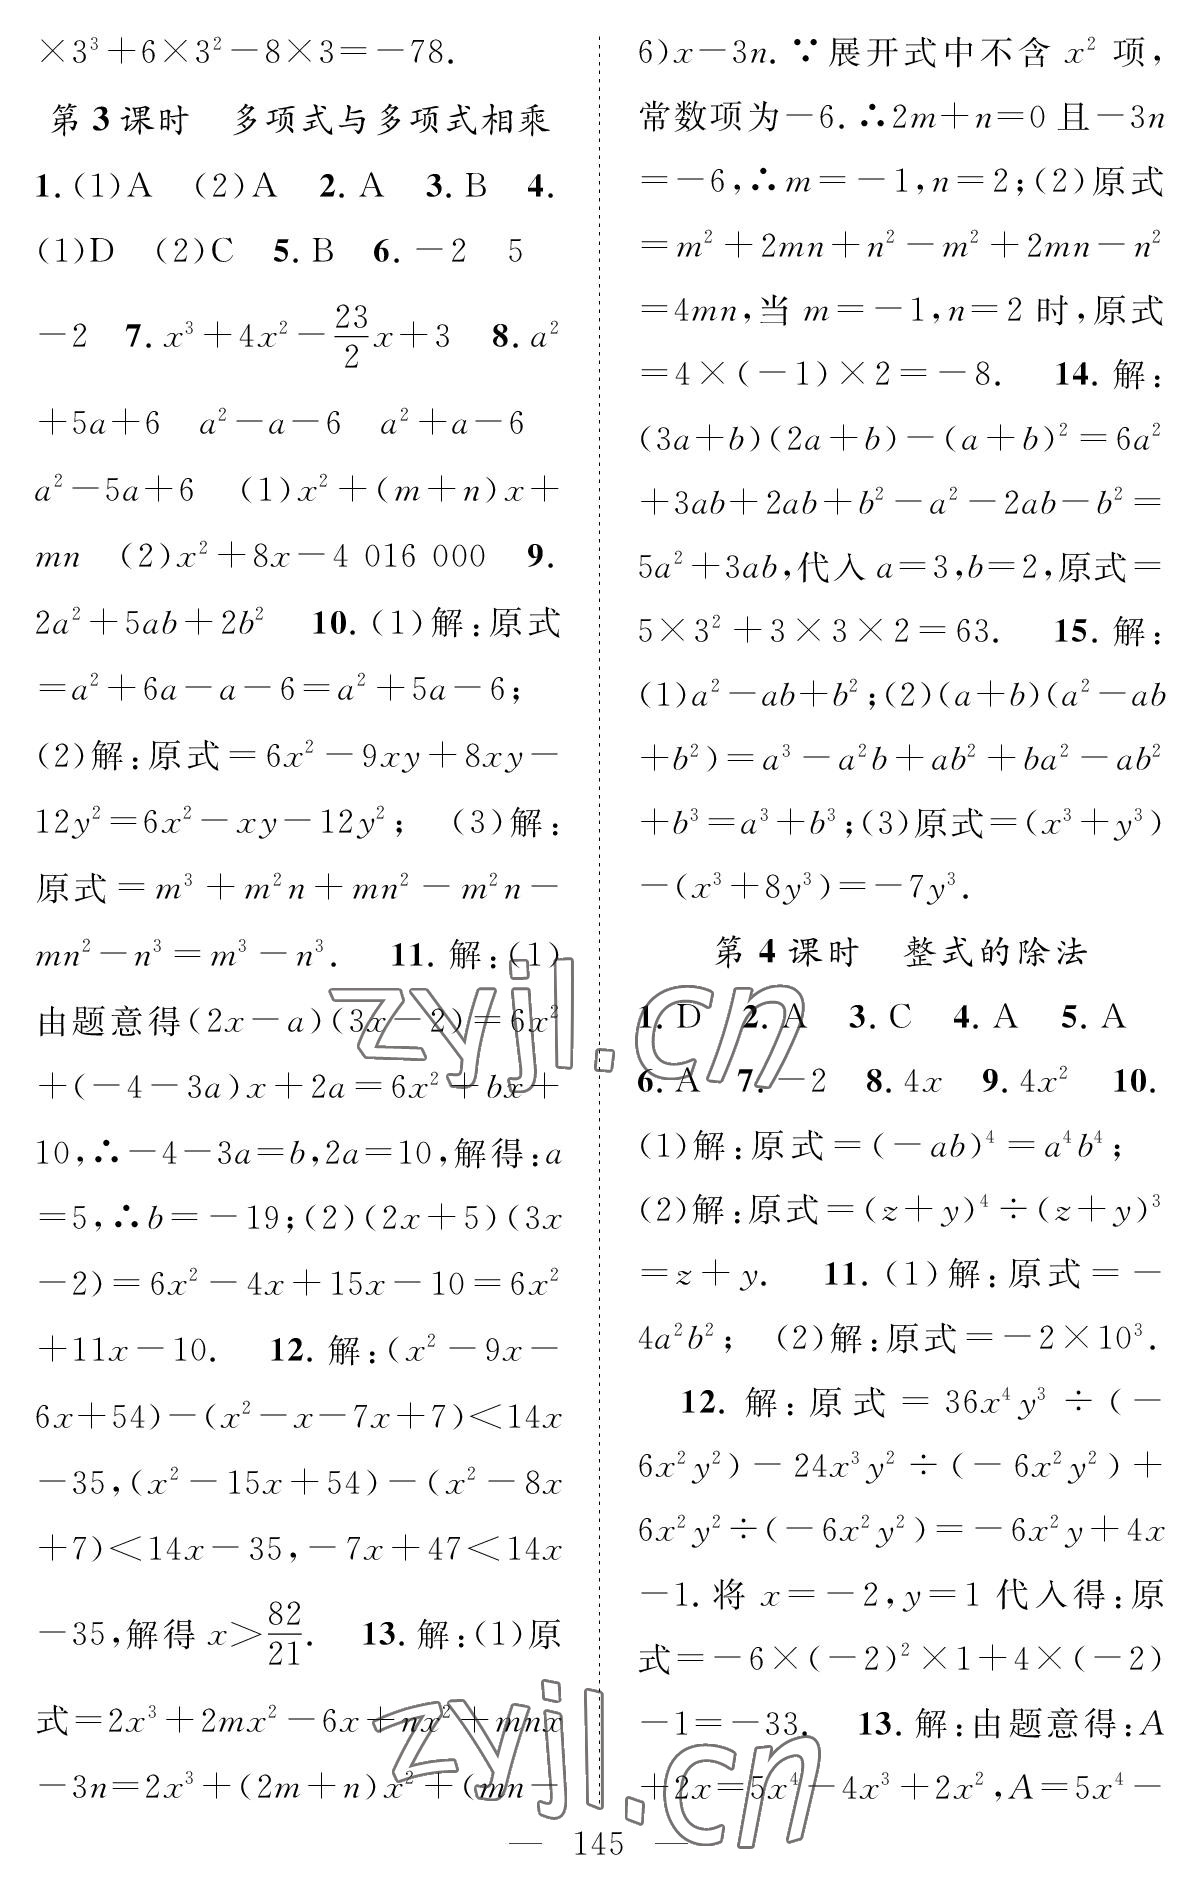 ×3³+6×3²-8×3=-78.
第 3 课时　多项式与多项式相乘
1.(1)A　(2)A　2.A　3.B　4.
(1)D　(2)C　5.B　6.-2　5
-2　7.x³+4x²-23/2x+3　8.a²
+5a+6　a²-a-6　a²+a-6
a²-5a+6　(1)x²+(m+n)x+
mn　(2)x²+8x-4 016 000　9.
2a²+5ab+2b²　10.(1)解:原式
=a²+6a-a-6=a²+5a-6;
(2)解:原式=6x²-9xy+8xy-
12y²=6x²-xy-12y²;　(3)解:
原式=m³+m²n+mn²-m²n-
mn²-n³=m³-n³.　11.解:(1)
由题意得(2x-a)(3x-2)=6x²
+(-4-3a)x+2a=6x²+bx+
10,∴-4-3a=b,2a=10,解得:a
=5,∴b=-19;(2)(2x+5)(3x
-2)=6x²-4x+15x-10=6x²
+11x-10.　12.解:(x²-9x-
6x+54)-(x²-x-7x+7)<14x
-35,(x²-15x+54)-(x²-8x
+7)<14x-35,-7x+47<14x
-35,解得 x>82/21.　13.解:(1)原
式=2x³+2mx²-6x+nx²+mnx
-3n=2x³+(2m+n)x²+(mn-
6)x-3n.∵展开式中不含 x² 项,
常数项为-6.∴2m+n=0 且-3n
=-6,∴m=-1,n=2;(2)原式
=m²+2mn+n²-m²+2mn-n²
=4mn,当 m=-1,n=2 时,原式
=4×(-1)×2=-8.　14.解:
(3a+b)(2a+b)-(a+b)²=6a²
+3ab+2ab+b²-a²-2ab-b²=
5a²+3ab,代入 a=3,b=2,原式=
5×3²+3×3×2=63.　15.解:
(1)a²-ab+b²;(2)(a+b)(a²-ab
+b²)=a³-a²b+ab²+ba²-ab²
+b³=a³+b³;(3)原式=(x³+y³)
-(x³+8y³)=-7y³.
第 4 课时　整式的除法
1.D　2.A　3.C　4.A　5.A
6.A　7.-2　8.4x　9.4x²　10.
(1)解:原式=(-ab)⁴=a⁴b⁴;
(2)解:原式=(z+y)⁴÷(z+y)³
=z+y.　11.(1)解:原式=-
4a²b²;　(2)解:原式=-2×10³.
12.解:原式=36x⁴y³÷(-
6x²y²)-24x³y²÷(-6x²y²)+
6x²y²÷(-6x²y²)=-6x²y+4x
-1.将 x=-2,y=1 代入得:原
式=-6×(-2)²×1+4×(-2)
-1=-33.　13.解:由题意得:A
+2x=5x⁴-4x³+2x²,A=5x⁴-
— 145 —
zyjl.cn
zyjl.cn